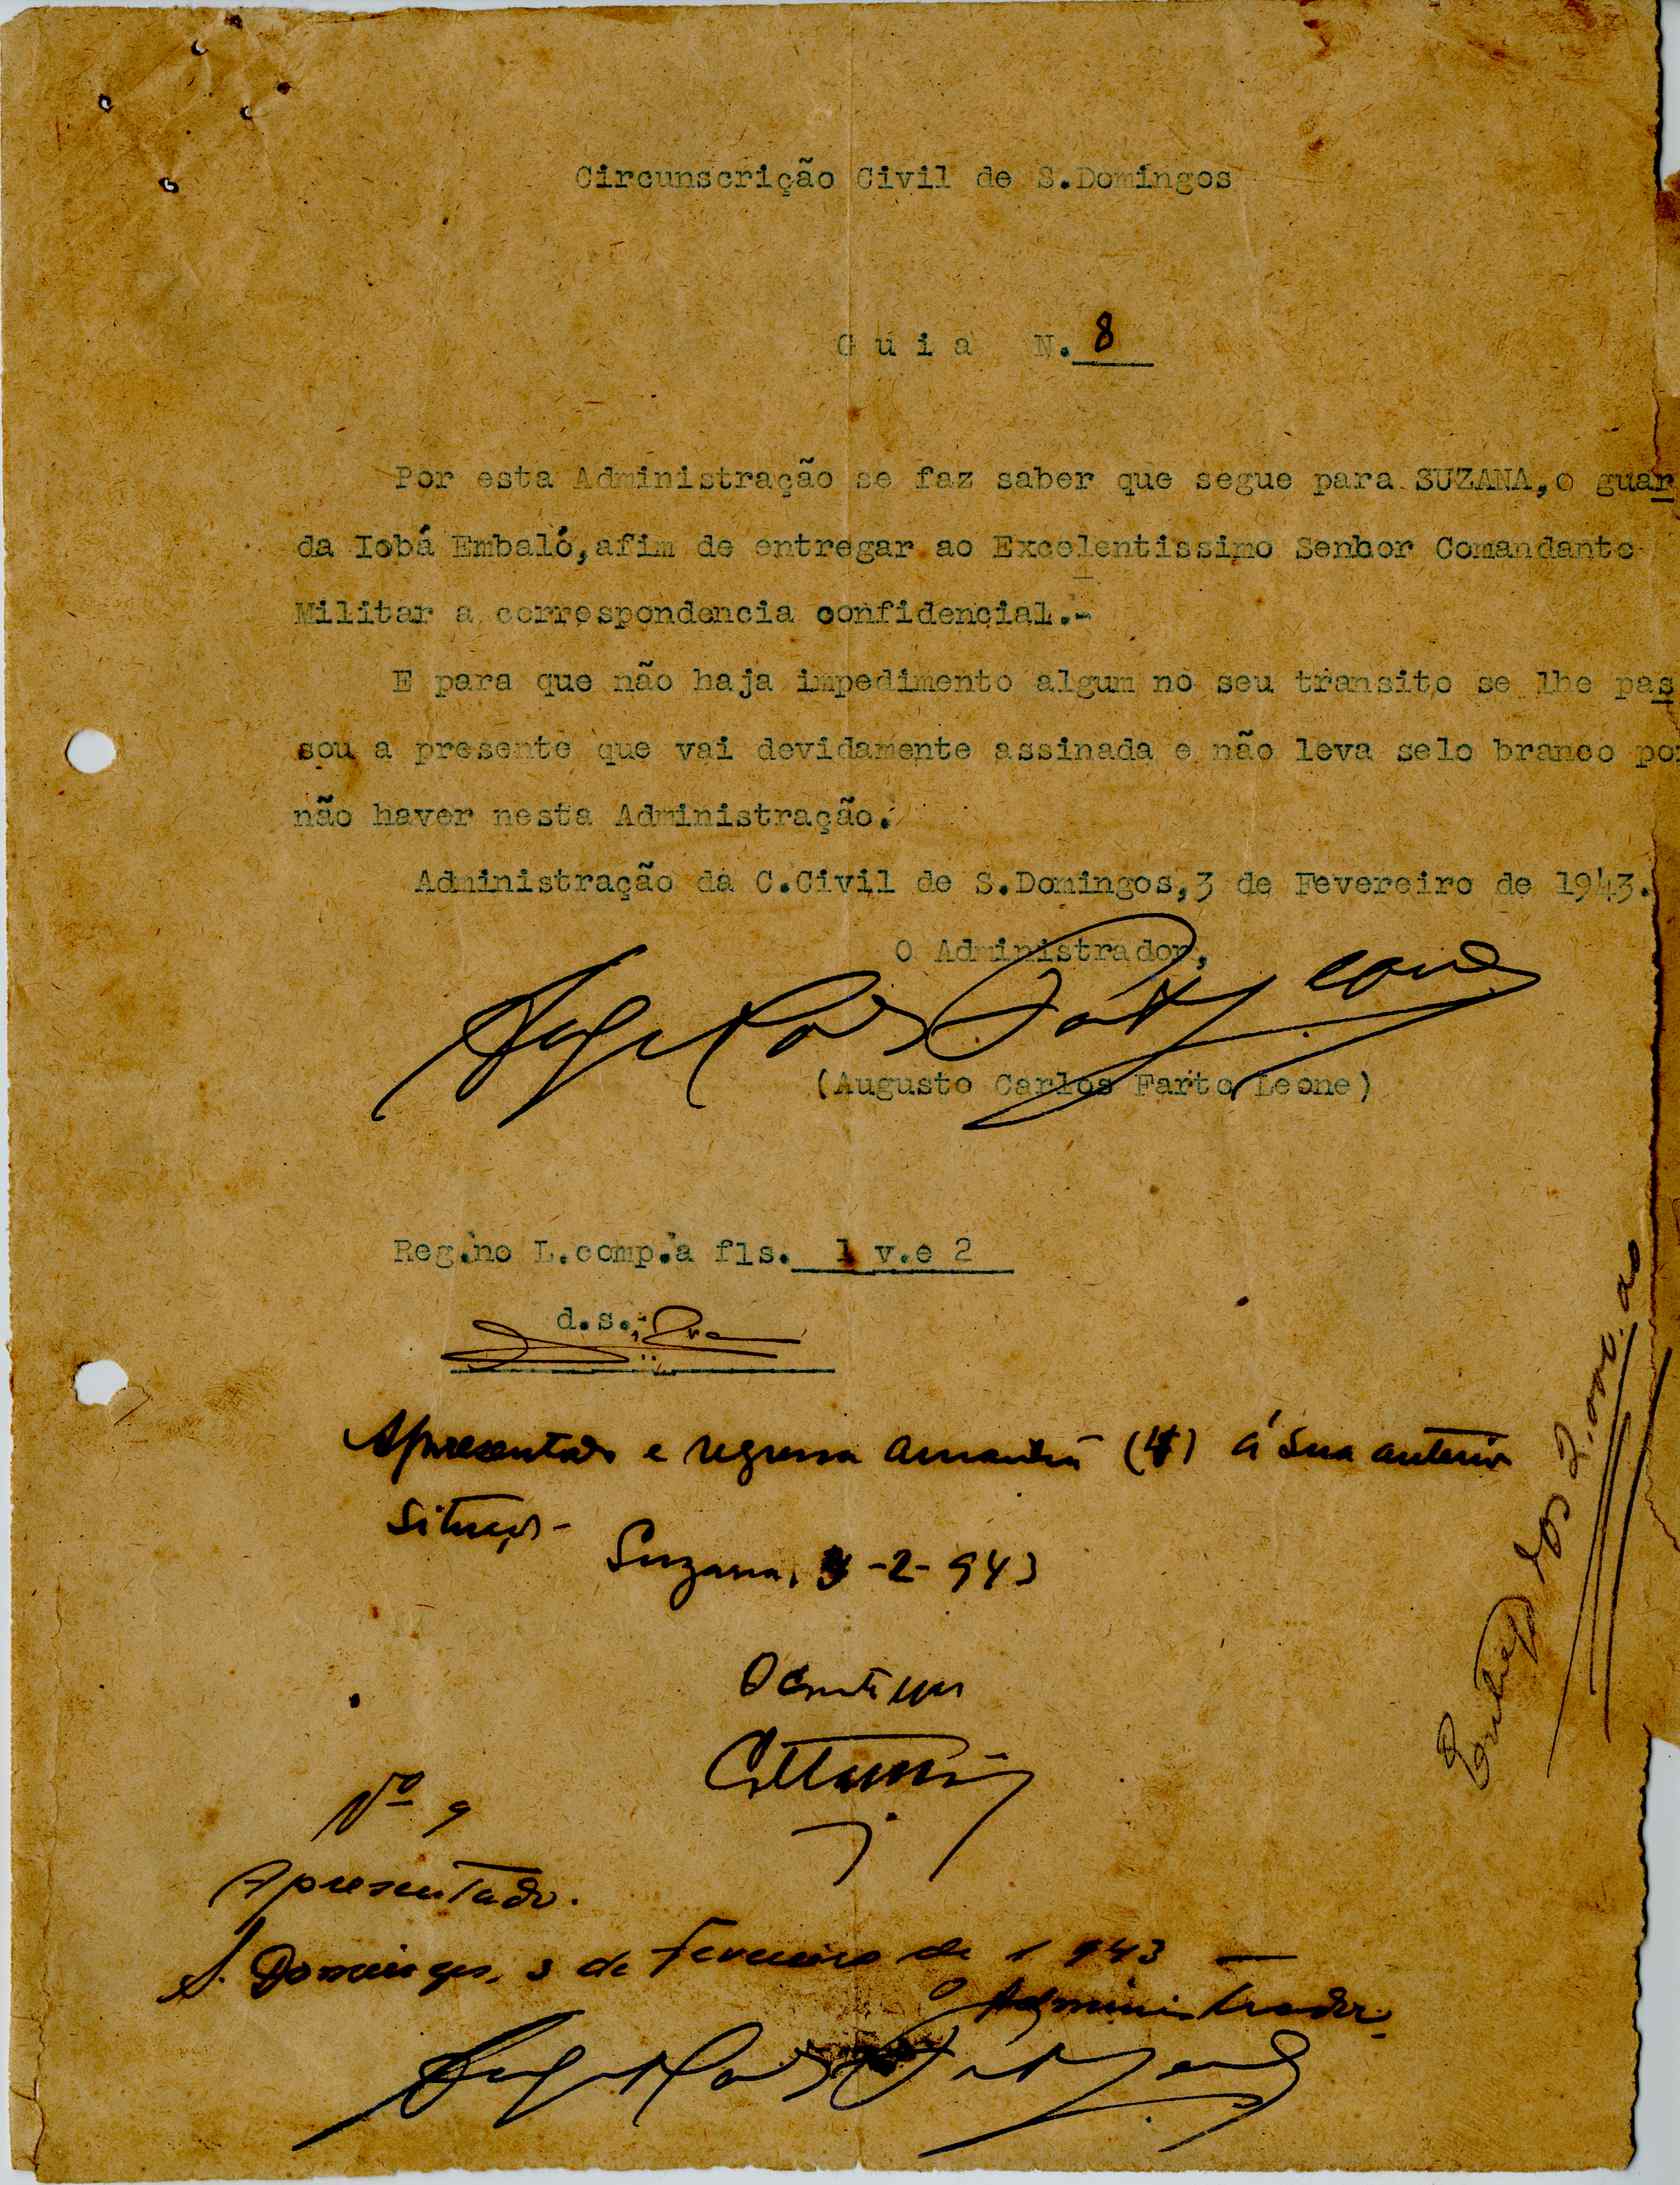 Circunscrição Civil de S.Domingos
G u i a N. 8
Por esta Administração se faz saber que segue para SUZANA,o guar
da Iobá Embaló,afim de entregar ao Excelentissimo Senhor Comandante
Militar a correspondencia confidencial.-
E para que não haja impedimento algum no seu transito se lhe pas
sou a presente que vai devidamente assinada e não leva selo branco por
não haver nesta Administração.
Administração da C.Civil de S.Domingos,3 de Fevereiro de 1943.
O Administrador,
(Augusto Carlos Farto Leone)
Reg.no L.comp.a fls. 1 v.e 2
d.s.
Apresentado e regressa amanhã (4) á sua anterior
situação-
Suzana, 3 -2- 943
Nº 9
Apresentado.
S. Domingos, 3 de Fevereiro de 1943
O Administrador.